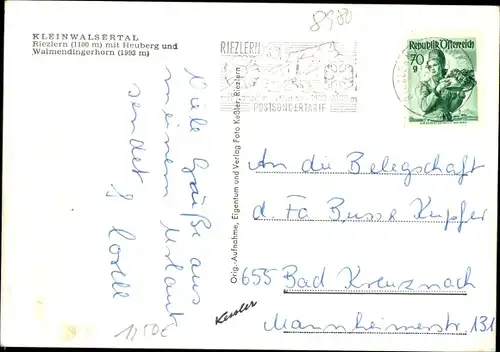 8980
KLEINWALSERTAL
Riezlern (1100 m) mit Heuberg und
Walmendingerhorn (1993 m)
RIEZLERN
POSTSONDERTARIF
Republik Österreich
70
g
Viele Grüße aus
meinem Urlaub
sendet
Orig.-Aufnahme, Eigentum und Verlag Foto Keßler, Riezlern
Kessler
An die Belegschaft
d. Fa Busse Kupfer
655 Bad Kreuznach
Mannheimerstr 131
1,50€